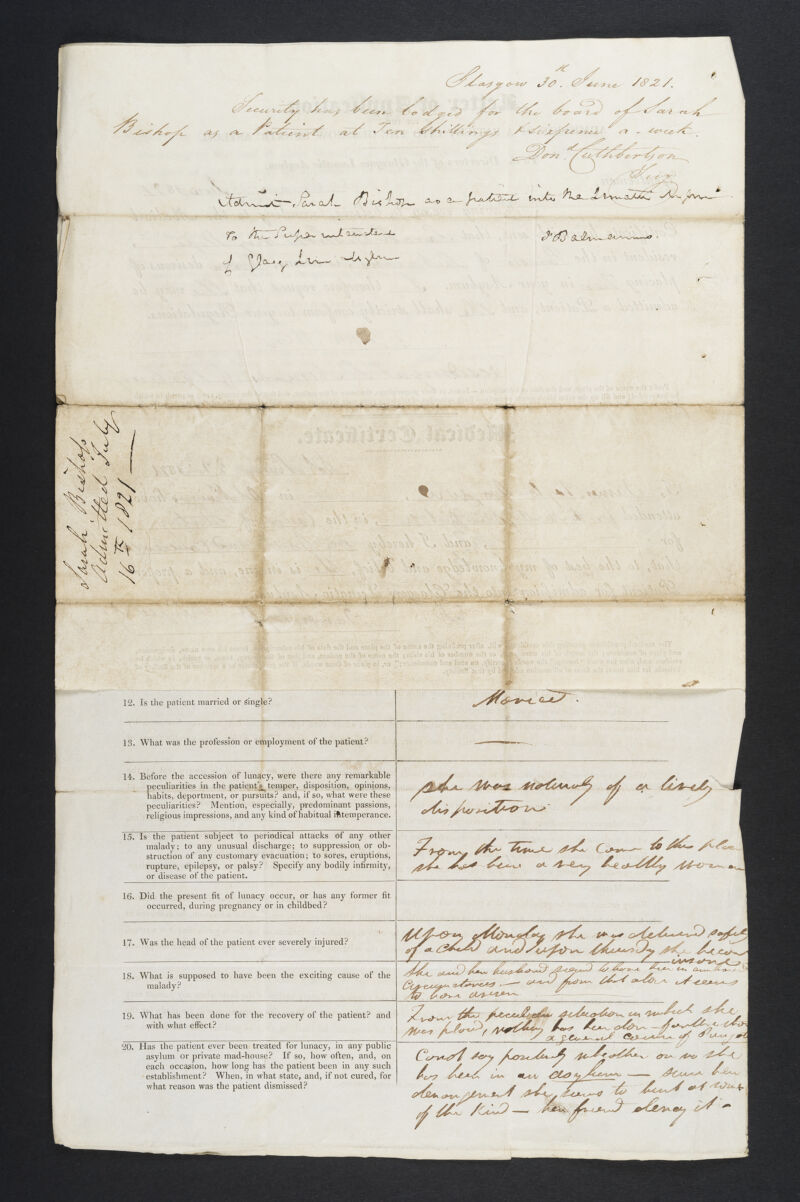 Glasgow 30th June 1821.
Security has been lodged for the board of Sarah
Bishop as a Patient at Ten Shillings & sixpence a week.
Don.d Cuthbertson
Admit Sarah Bishop as a patient into the Lunatic Asylum
To the Superintendent
of Glasg Lun Asylum
Sarah Bishop
Admitted July
16th 1821
Medical Certificate.
12. Is the patient married or single?
Married.
13. What was the profession or employment of the patient?
—
14. Before the accession of lunacy, were there any remarkable
peculiarities in the patient's temper, disposition, opinions,
habits, deportment, or pursuits? and, if so, what were these
peculiarities? Mention, especially, predominant passions,
religious impressions, and any kind of habitual intemperance.
She was naturaly of a lively
disposition
15. Is the patient subject to periodical attacks of any other
malady; to any unusual discharge; to suppression or ob-
struction of any customary evacuation; to sores, eruptions,
rupture, epilepsy, or palsy? Specify any bodily infirmity,
or disease of the patient.
From the time she came to this place
she has been a very healthy woman
16. Did the present fit of lunacy occur, or has any former fit
occurred, during pregnancy or in childbed?
17. Was the head of the patient ever severely injured?
Upon Monday she was delivered safely
of a child and upon thursday she became
insane
18. What is supposed to have been the exciting cause of the
malady?
She and her husband seemed to have been in
Circumstances — and from that alone it seems
to have arisen
19. What has been done for the recovery of the patient? and
with what effect?
From the peculiar situation in which she
was placed, nothing has been done further than
a general course of
20. Has the patient ever been treated for lunacy, in any public
asylum or private mad-house? If so, how often, and, on
each occasion, how long has the patient been in any such
establishment? When, in what state, and, if not cured, for
what reason was the patient dismissed?
Canot say positively whether or no she
has been in an asylum — since her
derangement she seems to hint at some
of the kind — her friend deney it -